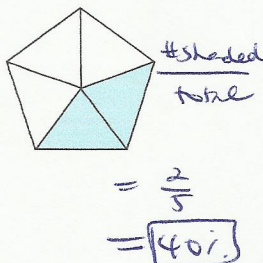 #shaded
total
= 2/5
= 40%